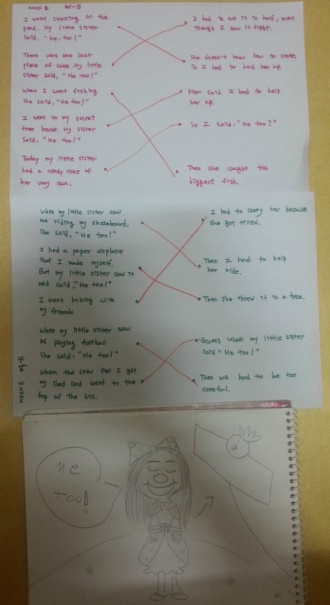 I went skating on the
pond. My little sister
said, "Me too!"
There was one last
piece of cake. My little
sister said, "Me too!"
When I went fishing
She said, "Me too!"
I went to my secret
tree house. My sister
Said, "Me too!"
Today my little sister
had a candy cane of
her very own.
I had to cut it in half, even
though I saw it first.
She doesn't know how to skate,
So I had to hold her up.
Mom said I had to help
her up.
So I said, "Me too?"
Then she caught the
biggest fish.
When my little sister saw
me riding my skateboard,
She said, "Me too!"
I had a paper airplane
that I made myself.
But my little sister saw it
and said, "Me too!"
I went hiking with
my friends
When my little sister saw
us playing football
She said, "Me too!"
When the snow fell I got
my sled and went to the
top of the hill.
I had to carry her because
She got tired.
Then I had to help
her ride.
Then she threw it in a tree.
Guess what my little sister
said? "Me too!"
Then we had to be too
careful.
ME
TOO!